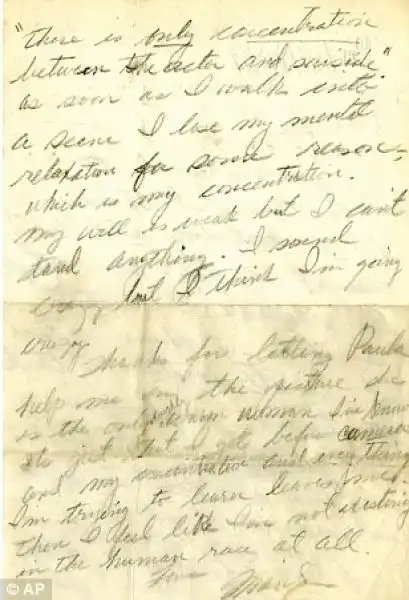 "There is only concentration
between the actor and suicide"
as soon as I walk into
a scene I lose my mental
relaxation for some reason,
which is my concentration.
My will is weak but I can't
stand anything. I sound
crazy but I think I'm going
crazy.
Thanks for letting Paula
help me on the picture she
is the only really warm woman I've known
Its just that I get before camera
and my concentration and everything
I'm trying to learn leaves me.
Then I feel like I'm not existing
in the human race at all.
Love
© AP